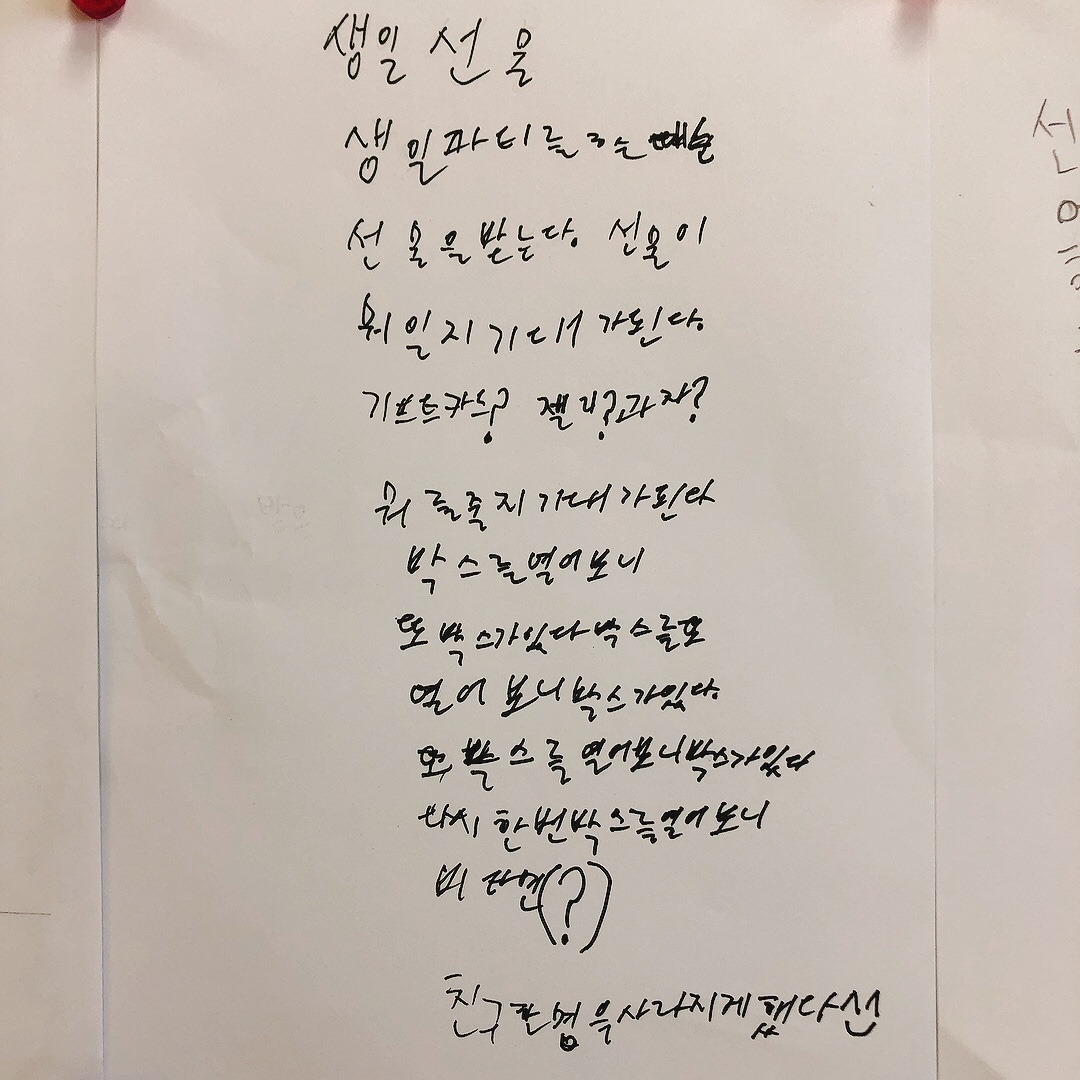 생일 선물
생일파티를 하는
선물을 받는다. 선물이
뭐일지 기대 가된다.
기프트카드? 젤리?과자?
뭐 를줄지 기대 가된다
박스를열어보니
또 박스가있다 박스를또
열어 보니 박스가있다.
또 박스를 열어보니박스가있다
다시 한번박스를열어보니
비 타민(?)
친구한명을사라지게했다
선